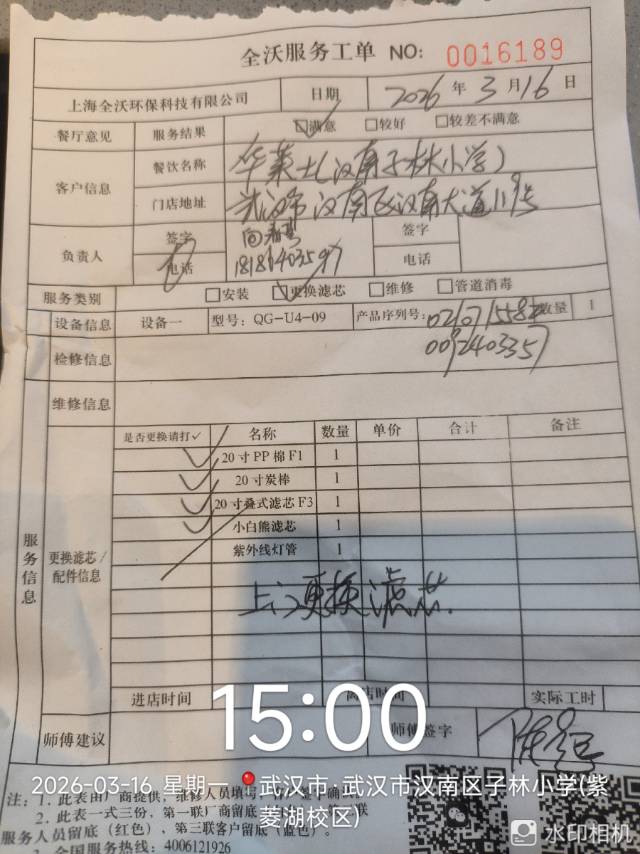 全沃服务工单 NO: 0016189
上海全沃环保科技有限公司 日期 2026年3月16日
餐厅意见 服务结果 ☑满意 □较好 □较差不满意
客户信息 餐饮名称 华莱士(汉南子林小学)
门店地址 武汉市汉南区汉南大道119号
负责人 签字 签字
电话 18186403597 电话
服务类别 □安装 ☑更换滤芯 □维修 □管道消毒
设备信息 设备一 型号: QG-U4-09 产品序列号: 数量 1
0092403357
检修信息
维修信息
服务信息
更换滤芯/配件信息
是否更换请打✓ 名称 数量 单价 合计 备注
✓ 20寸PP棉F1 1
✓ 20寸炭棒 1
✓ 20寸叠式滤芯F3 1
✓ 小白熊滤芯 1
紫外线灯管 1
上门更换滤芯.
进店时间 离店时间 实际工时
15:00
师傅建议 师傅签字
2026-03-16 星期一 武汉市·武汉市汉南区子林小学(紫菱湖校区)
注: 1. 此表由厂商提供, 维修人员填写
2. 此表一式三份, 第一联厂商留底
服务人员留底(红色), 第三联客户留底(蓝色)。
3. 全国服务热线: 4006121926
水印相机